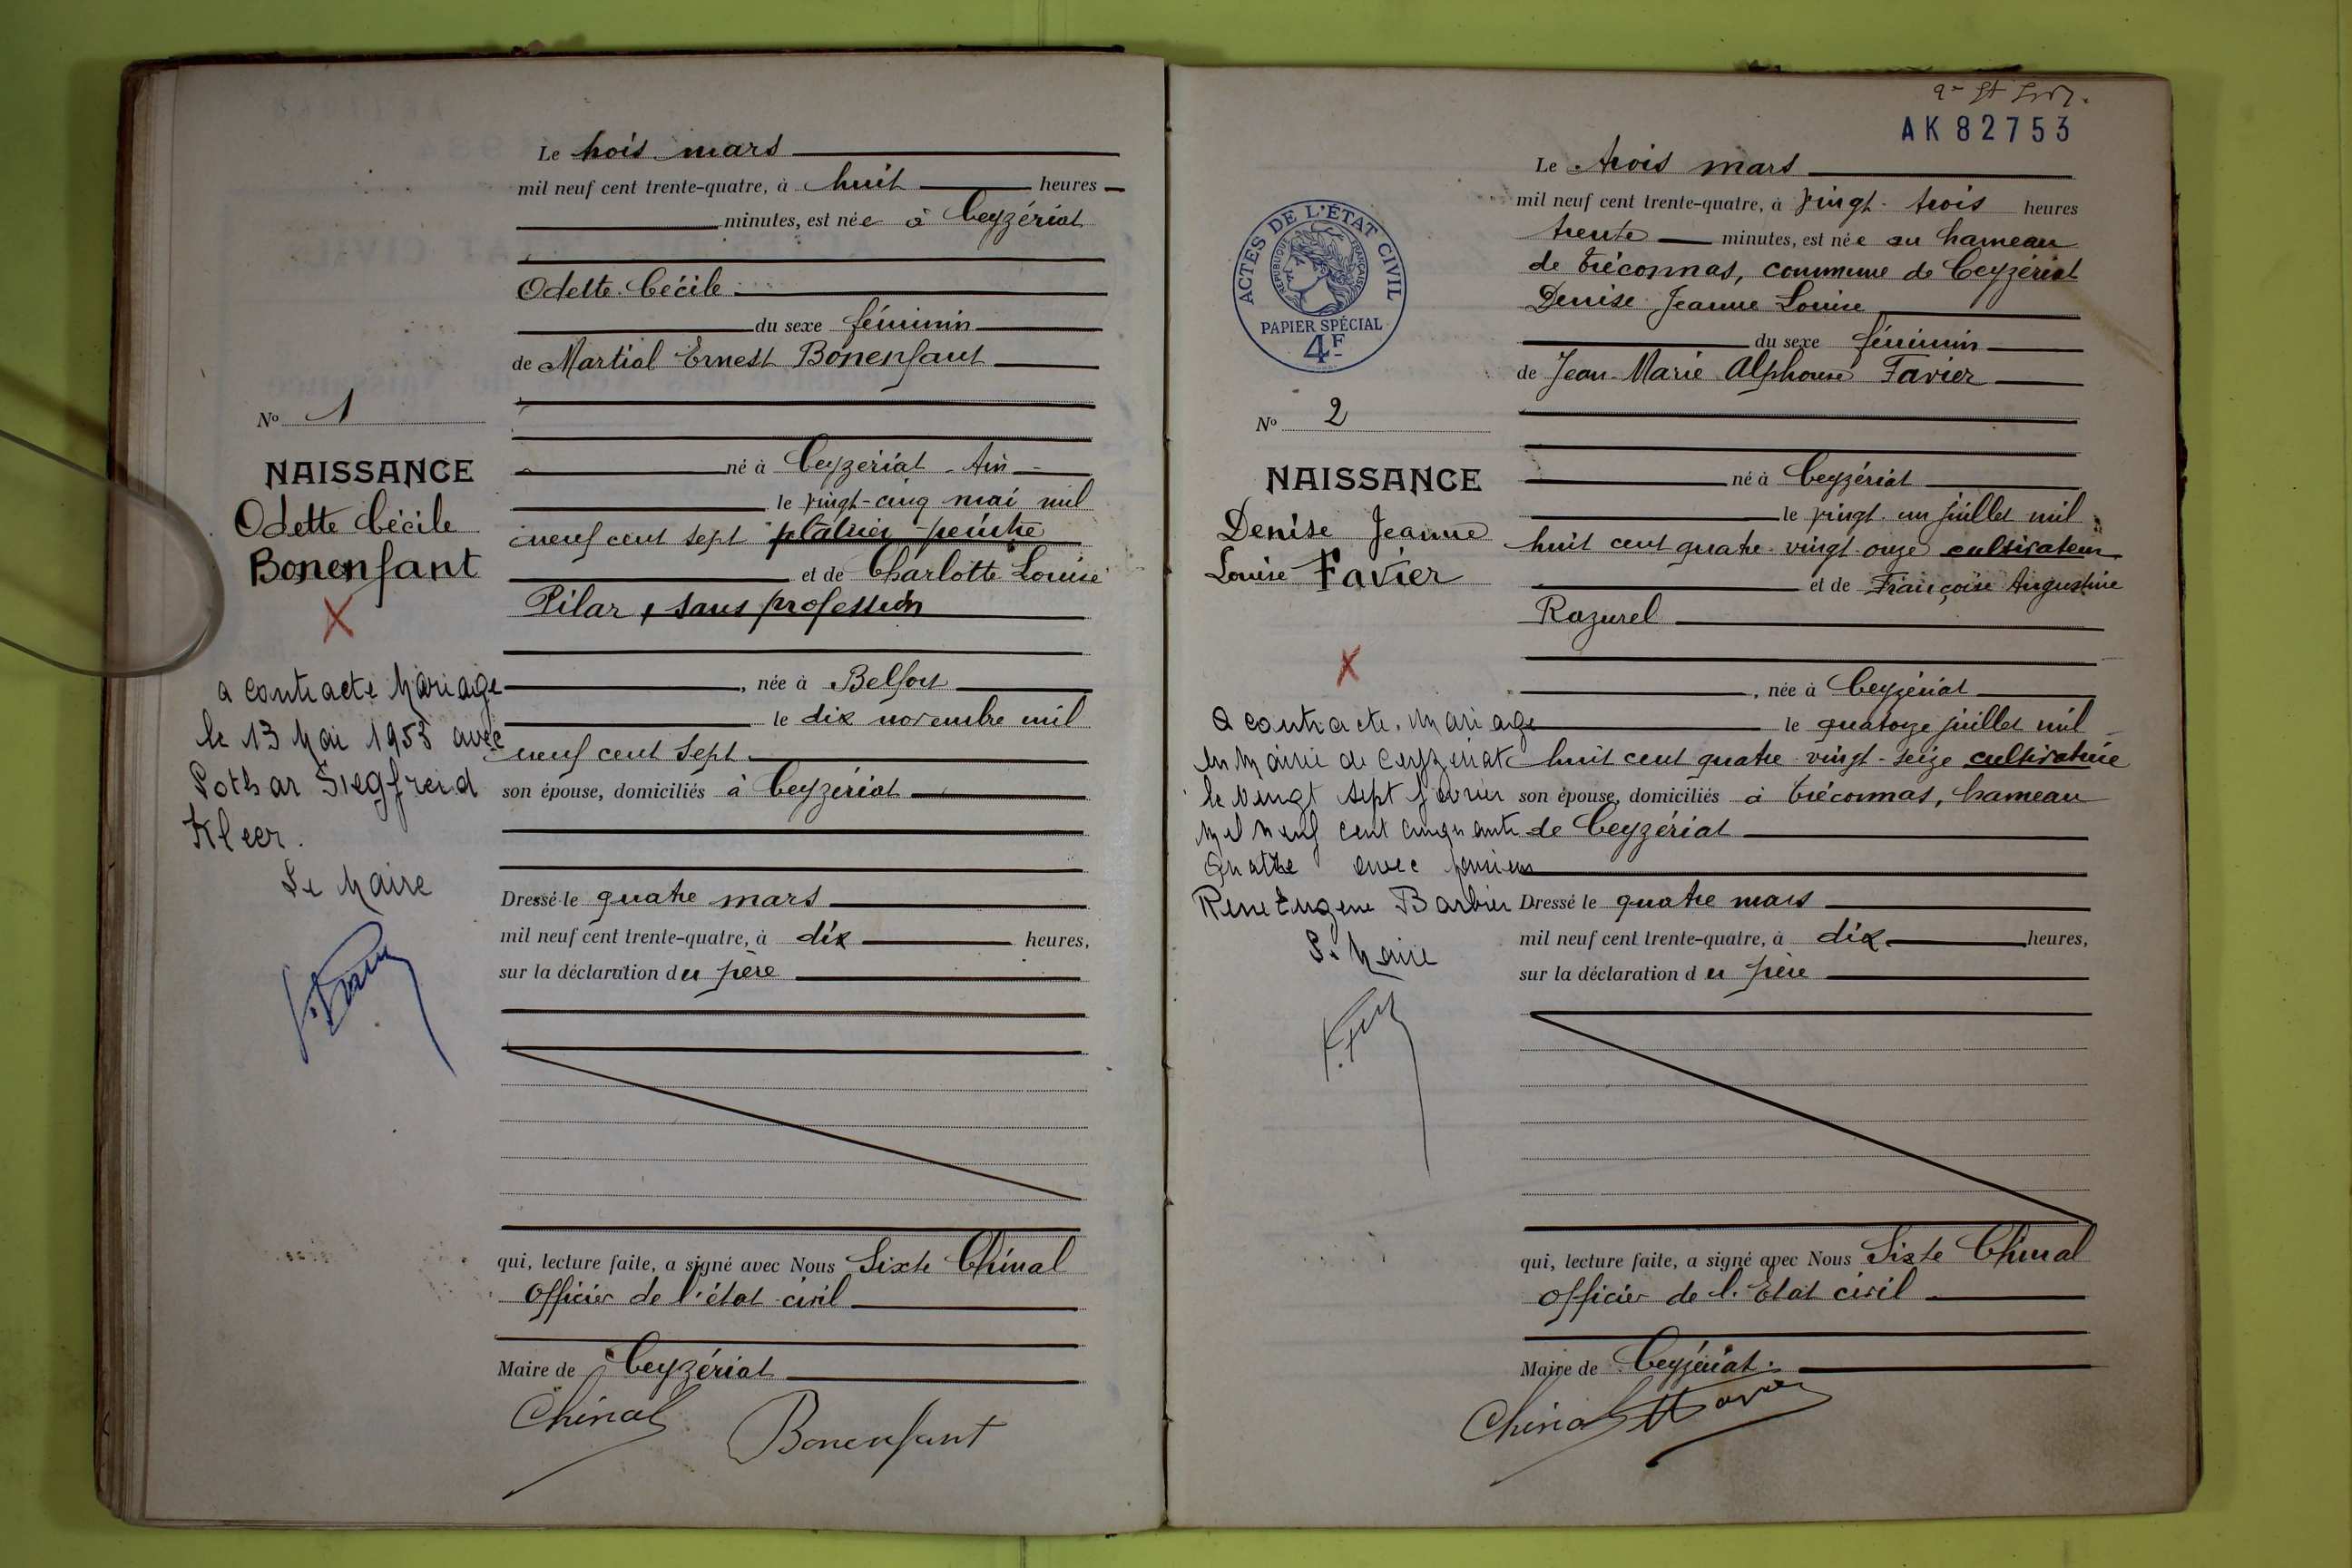 Le trois mars
mil neuf cent trente-quatre, à huit heures
minutes, est née à Ceyzériat
Odette Cécile
du sexe féminin
de Martial Ernest Bonenfant
né à Ceyzériat - Ain
le vingt-cinq mai mil
neuf cent sept plâtrier-peintre
et de Charlotte Louise
Pilar, sans profession
née à Belfort
le dix novembre mil
neuf cent sept
son épouse, domiciliés à Ceyzériat
Dressé le quatre mars
mil neuf cent trente-quatre, à dix heures,
sur la déclaration du père
qui, lecture faite, a signé avec Nous Sixte Chinal
Officier de l'état civil
Maire de Ceyzériat
Chinal Bonenfant
No 1
NAISSANCE
Odette Cécile
Bonenfant
a contracté Mariage
le 13 Mai 1953 avec
Lothar Siegfreid
Kleer.
Le Maire
AK 82753
Le trois mars
mil neuf cent trente-quatre, à vingt-trois heures
trente minutes, est née au hameau
de Tréconnas, commune de Ceyzériat
Denise Jeanne Louise
du sexe féminin
de Jean-Marie Alphonse Favier
né à Ceyzériat
le vingt-un juillet mil
huit cent quatre-vingt-onze cultivateur
et de Françoise Augustine
Razurel
, née à Ceyzériat
le quatorze juillet mil
huit cent quatre-vingt-seize cultivatrice
son épouse, domiciliés à Tréconnas, hameau
de Ceyzériat
Dressé le quatre mars
mil neuf cent trente-quatre, à dix heures,
sur la déclaration du père
qui, lecture faite, a signé avec Nous Sixte Chinal
Officier de l'Etat civil
Maire de Ceyzériat.
Chinal Favier
ACTES DE L'ÉTAT CIVIL
RÉPUBLIQUE FRANÇAISE
PAPIER SPÉCIAL
4F
No 2
NAISSANCE
Denise Jeanne
Louise Favier
A contracté Mariage
en Mairie de Ceyzériat
le Vingt Sept février
Mil Neuf cent cinquante
Quatre avec
René Eugène Barbier
Le Maire